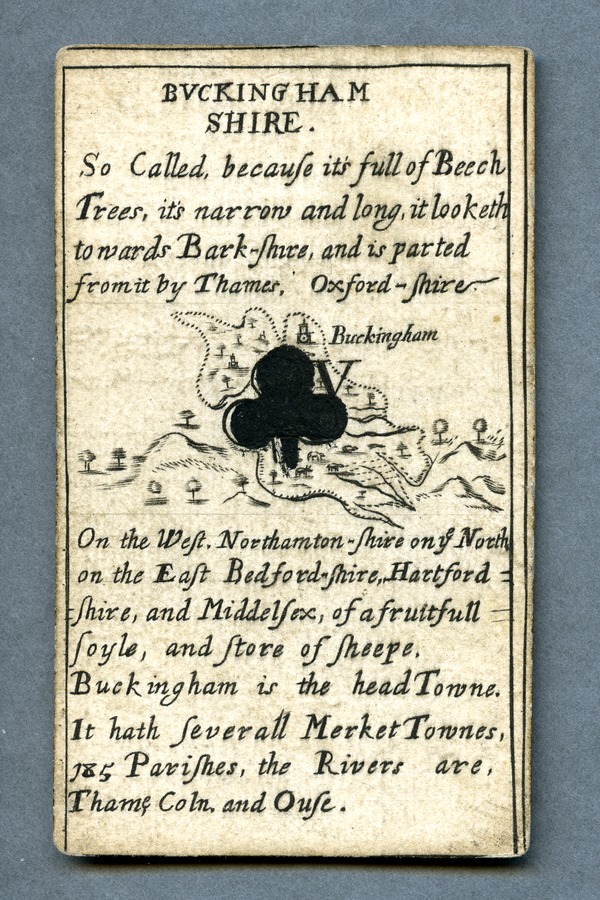 BVCKINGHAM
SHIRE.
So Called, becauſe its full of Beech
Trees, its narrow and long, it looketh
towards Bark-ſhire, and is parted
from it by Thames, Oxford-ſhire
Buckingham
V
On the Weſt. Northamton-ſhire on yͤ North
on the Eaſt Bedford-ſhire, Hartford =
=ſhire, and Middelſex, of a fruitfull
ſoyle, and ſtore of ſheepe.
Buckingham is the head Towne.
It hath ſeverall Merket Townes,
185 Pariſhes, the Rivers are,
Thames Coln. and Ouſe.